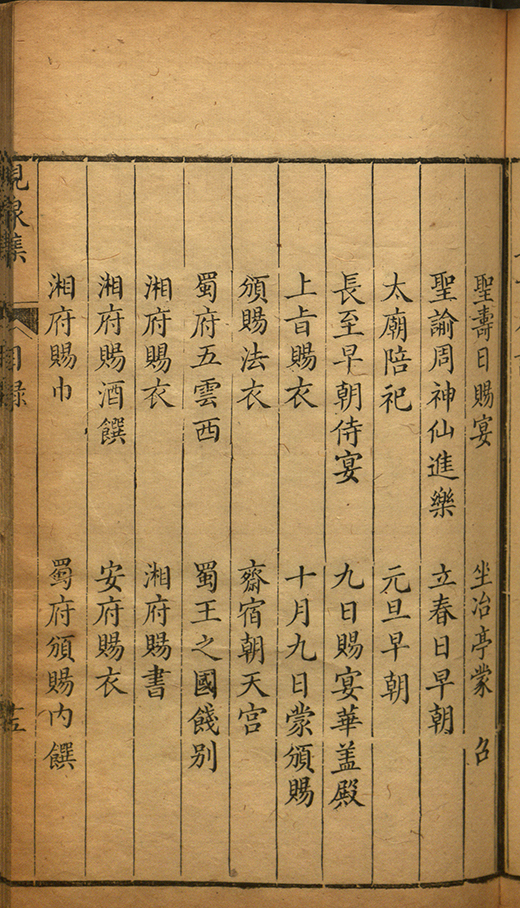 聖壽日賜宴 坐治亭蒙 召
聖諭周神仙進樂 立春日早朝
太廟陪祀 元旦早朝
長至早朝侍宴 九日賜宴華盖殿
上旨賜衣 十月九日蒙頒賜
頒賜法衣 齋宿朝天宫
蜀府五雲西 蜀王之國餞别
湘府賜衣 湘府賜書
湘府賜酒饌 安府賜衣
湘府賜巾 蜀府頒賜内饌
峴泉集 目録